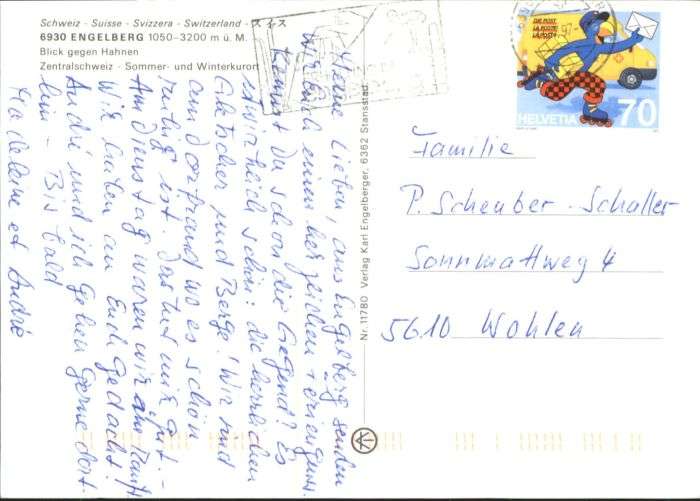 Schweiz - Suisse - Svizzera - Switzerland - スイス
6930 ENGELBERG 1050-3200 m ü. M.
Blick gegen Hahnen
Zentralschweiz - Sommer- und Winterkurort
DIE POST
LA POSTE
LA POSTA
HELVETIA 70
Meine Lieben, aus Engelberg senden
wir Euch einen herzlichen Feriengruss.
Kennst Du schon die Gegend? Es
ist wirklich schön: die herrlichen
Gletscher und Berge! Wir sind
am Dorfrand wo es schön
ruhig ist. Das tut mir gut. -
Am Dienstag waren wir am
Wir haben an Euch gedacht!
André und ich gehen gerne dort
hin - Bis bald
Madeleine et André
Nr. 11780 Verlag Karl Engelberger, 6362 Stansstad
Familie
P. Scheuber-Schaller
Sonnmattweg 4
5610 Wohlen